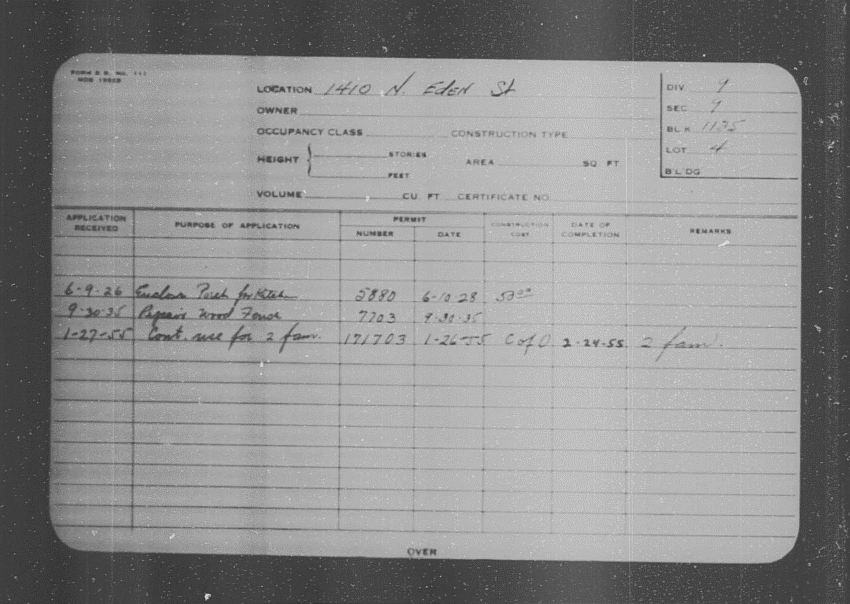 FORM B.B. NO. 111
LOCATION 1410 N. EDEN St
OWNER
OCCUPANCY CLASS CONSTRUCTION TYPE
HEIGHT STORIES FEET AREA SQ. FT
VOLUME CU. FT CERTIFICATE NO.
DIV 9
SEC 9
BLK 1135
LOT 4
BLDG
APPLICATION RECEIVED PURPOSE OF APPLICATION PERMIT NUMBER DATE CONSTRUCTION COST DATE OF COMPLETION REMARKS
6-9-26 Enclose Porch for Kitchen 5880 6-10-28
9-30-35 Repairs Wood Fence 7703 9-30-35
1-27-55 Cont. use for 2 fam. 171703 1-26-55 C of O 2-24-55 2 fam.
OVER